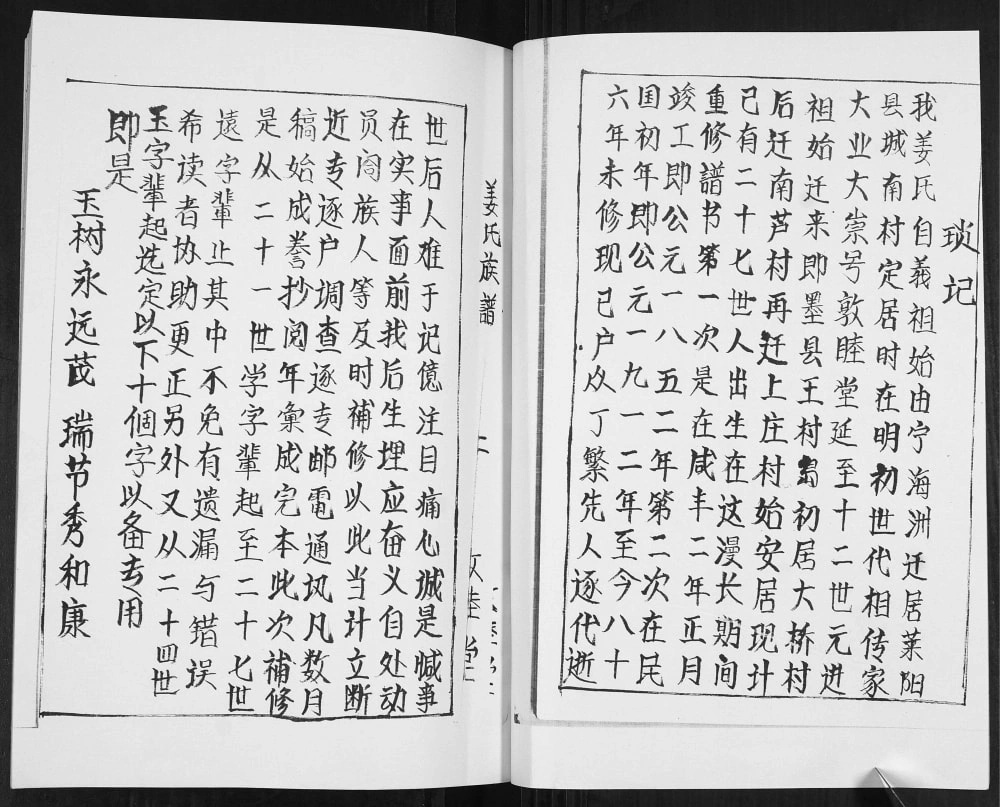 琐记
我姜氏自義祖始由宁海洲迁居莱阳
县城南村定居时在明初世代相传家
大业大崇号敦睦堂延至十二世元进
祖始迁来即墨县王村岛初居大桥村
后迁南芦村再迁上庄村始安居现计
己有二十七世人出生在这漫長期间
重修譜书第一次是在咸丰二年正月
竣工即公元一八五二年第二次在民
国初年即公元一九一二年至今八十
六年未修现己户众丁繁先人逐代逝
姜氏族譜
世后人难于记億注目痛心诚是憾事
在实事面前我后生埋应奋义自处动
员阎族人等及时補修以此当计立断
近专逐户調查逐专邮電通风凡数月
稿始成誊抄阅年彙成完本此次補修
是从二十一世学字輩起至二十七世
遠字輩止其中不免有遗漏与错误
希读者协助更正另外又从二十四世
玉字輩起选定以下十個字以备专用
即是
玉树永远茂 瑞节秀和康